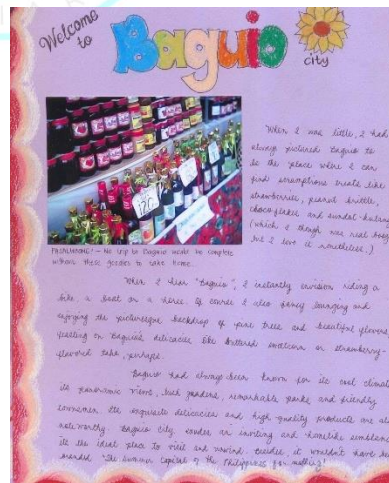 Welcome
to
Baguio
city
"When I was little, I had
always pictured Baguio to
be the place where I can
find scrumptious treats like
strawberries, peanut brittle,
choco flakes and sundot-kulangot
(which I though was real
but I love it nonetheless.)
PASALUBONG! - No trip to Baguio would be complete
without these goodies to take home.
When I hear "Baguio", I instantly envision riding a
bike, a boat or a horse. Of course I also fancy lounging and
enjoying the picturesque backdrop of pine trees and beautiful flowers,
feasting on Baguio's delicacies like buttered sweetcorn or strawberry-
flavored taho, perhaps.
Baguio had always been known for its cool climate,
its panoramic views, lush gardens, remarkable parks and friendly
townsmen. Its exquisite delicacies and high-quality products are also
noteworthy. Baguio City, render an inviting and homelike semblance
its the ideal place to visit and unwind. Besides, it wouldn't have been
branded "The Summer Capital of the Philippines for nothing!